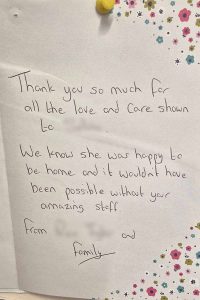 Thank you so much for
all the love and care shown
to
We know she was happy to
be home and it wouldnt have
been possible without your
amazing staff
From
and
family